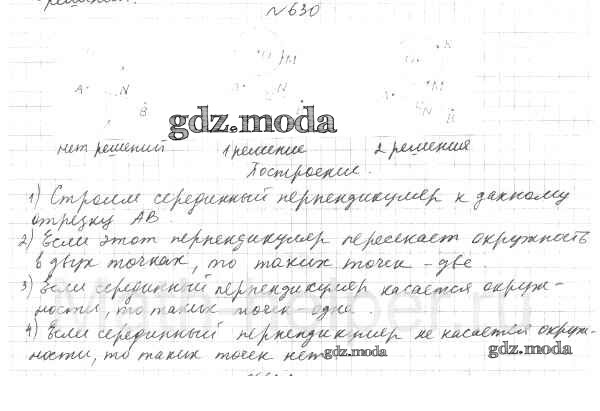 решений.
№630
O M K
A N M
B N A N B
gdz.moda
нет решений 1 решение 2 решения
Построение.
1) Строим серединный перпендикуляр к данному
отрезку AB.
2) Если этот перпендикуляр пересекает окружность
в двух точках, то таких точек - две.
3) Если серединный перпендикуляр касается окруж-
ности, то таких точек - одна.
4) Если серединный перпендикуляр не касается окруж-
ности, то таких точек нет.
gdz.moda gdz.moda